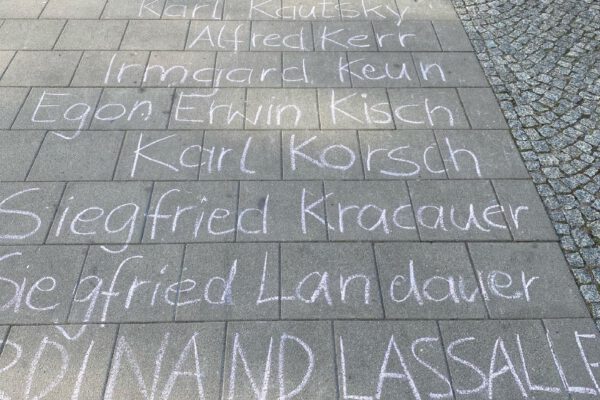 Karl Kautsky
Alfred Kerr
Irmgard Keun
Egon Erwin Kisch
Karl Korsch
Siegfried Kracauer
Siegfried Landauer
RDINAND LASSALLE